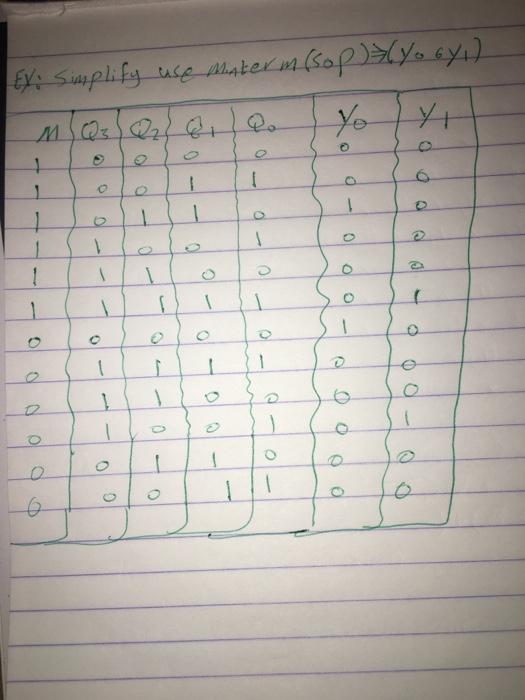 EX: Simplify use Minterm (SOP) ⇒ (Y0 6 Y1)
M Q3 Q2 Q1 Q0 Y0 Y1
1 0 0 0 0 0 0
1 0 0 1 1 0 0
1 0 1 1 0 1 0
1 1 0 0 1 0 0
1 1 1 0 0 0 0
1 1 1 1 1 0 1
0 0 0 0 0 1 0
0 1 1 1 1 0 0
0 1 1 0 0 0 0
0 1 0 0 1 0 1
0 0 1 1 0 0 0
0 0 0 1 1 0 0